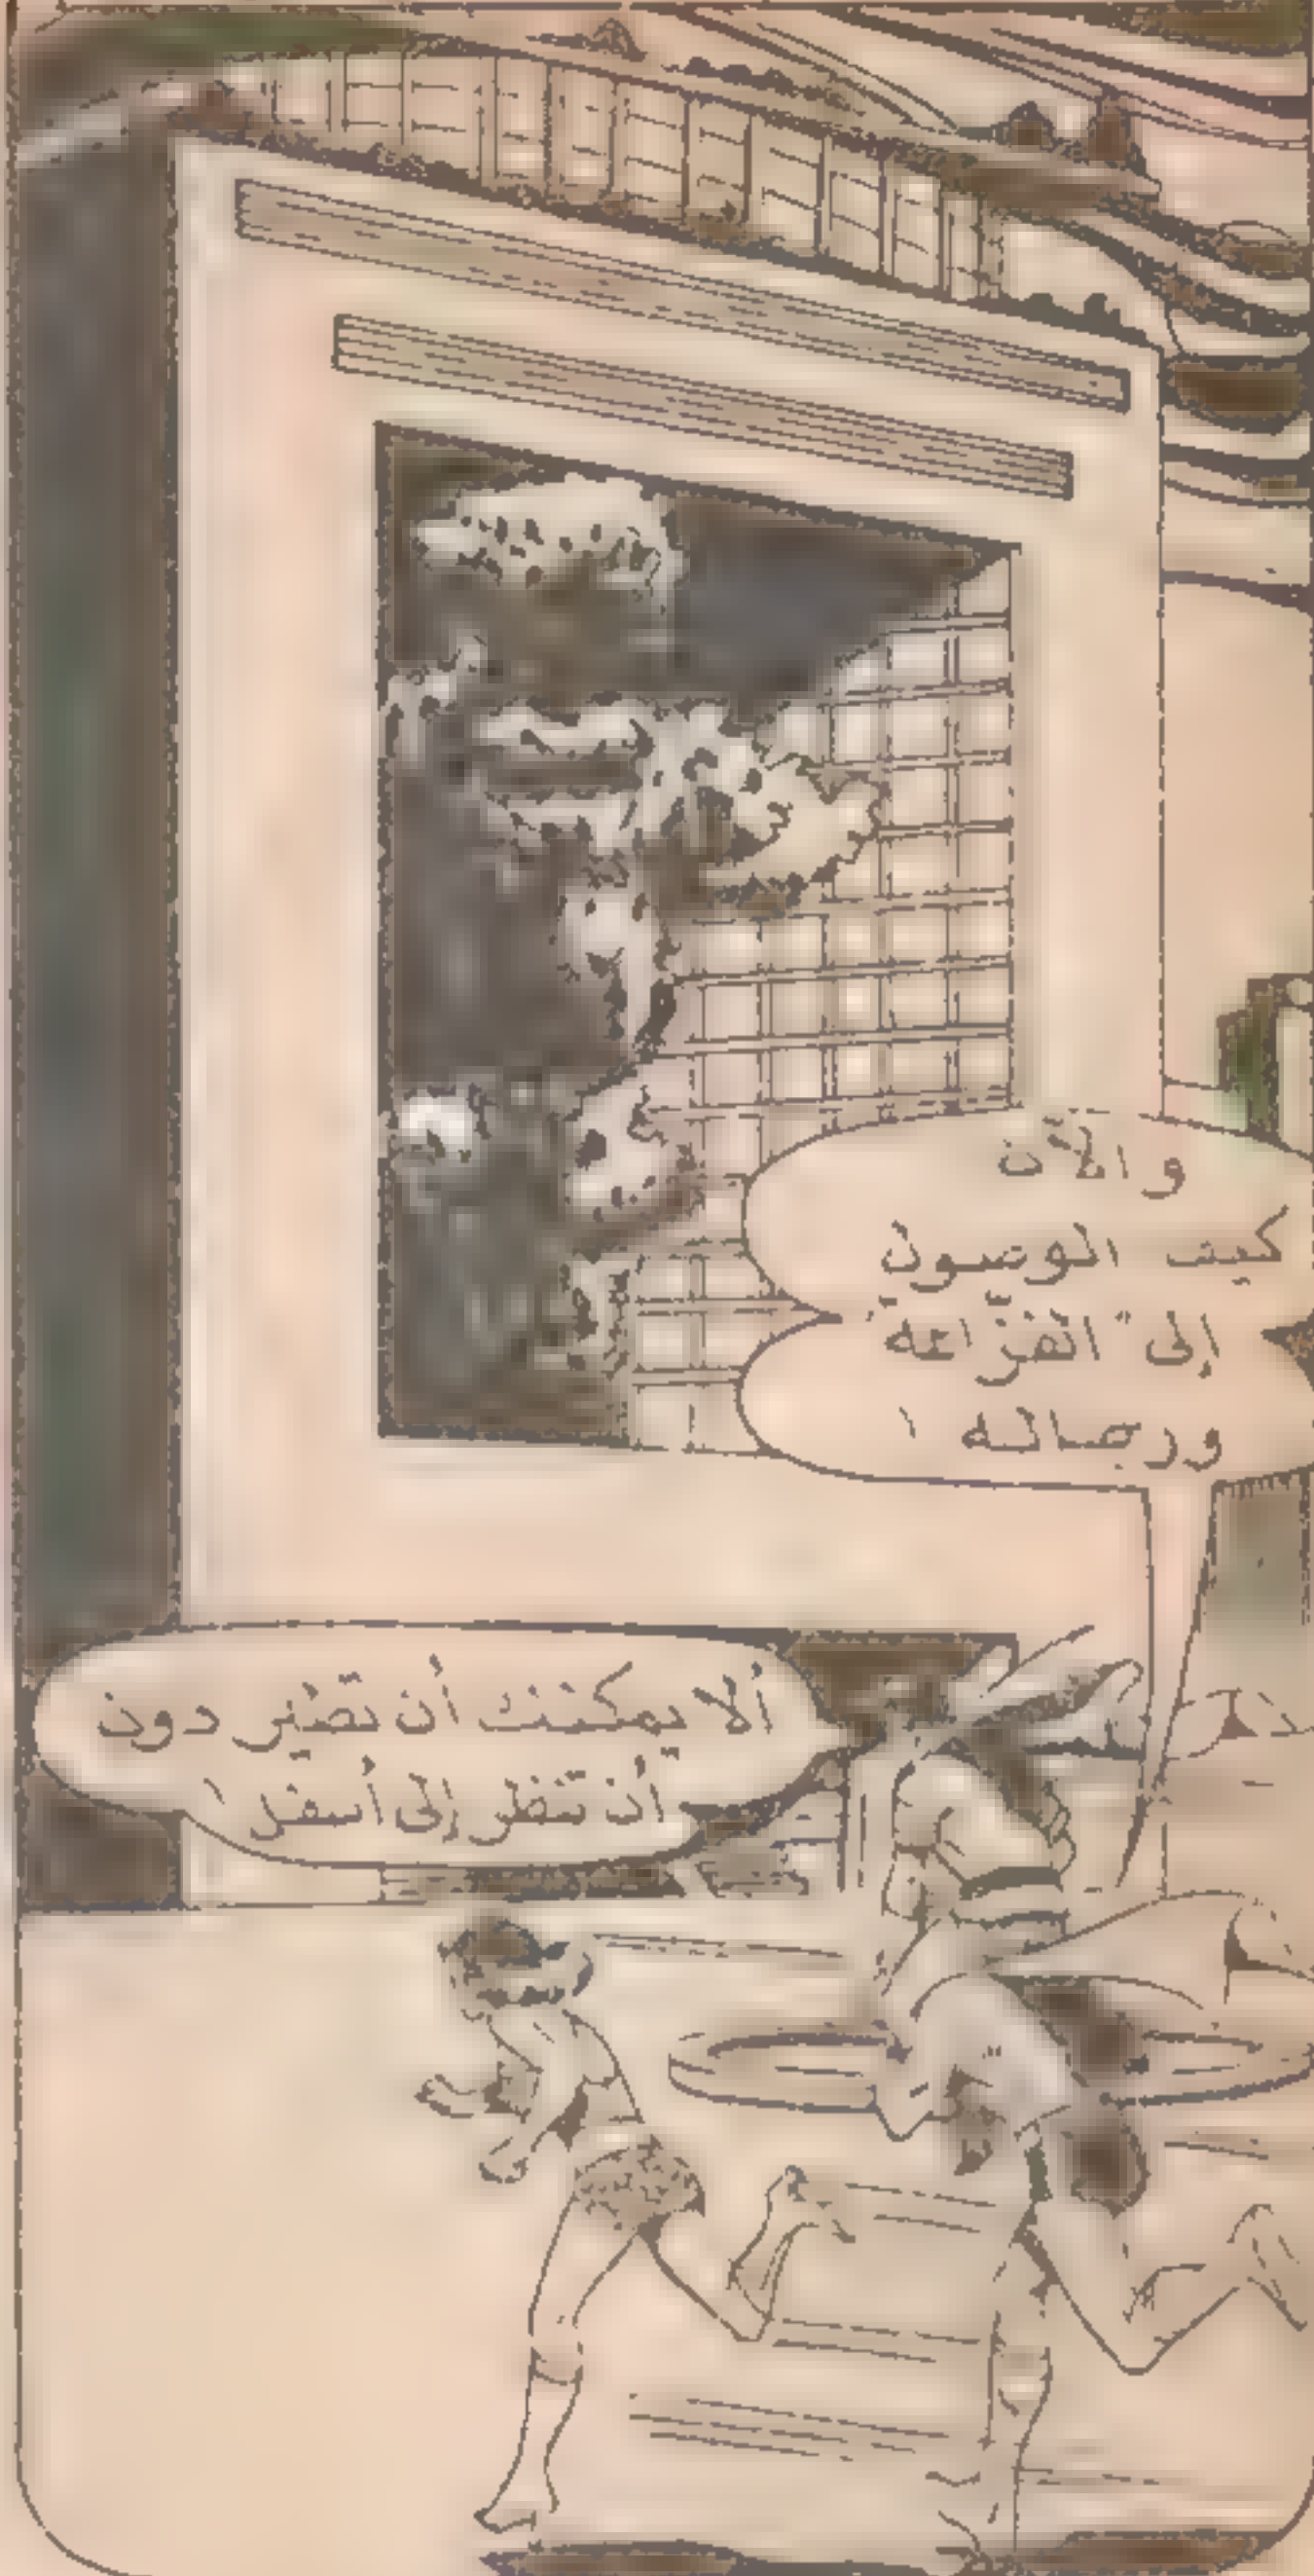 والآن
كيف الوصول
إلى "الفزّاعة"
ورجاله !
ألا يمكنك أن تطير دون
أن تنظر إلى أسفل !